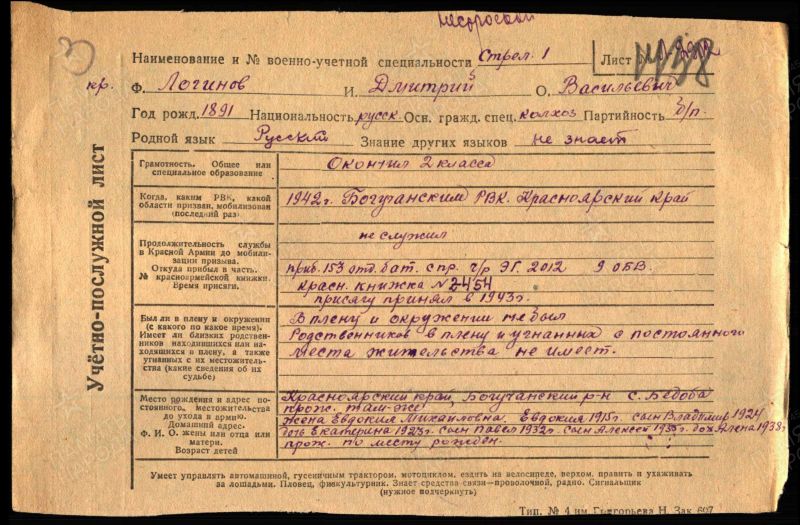 нестроевой
Наименование и № военно-учетной специальности Стрел. 1 Лист №
кр. Ф. Логинов И. Дмитрий О. Васильевич
Год рожд. 1891 Национальность русск. Осн. гражд. спец. колхоз Партийность б/п.
Родной язык Русский Знание других языков не знает
Учётно-послужной лист
Грамотность. Общее или специальное образование
Окончил 2 класса
Когда, каким РВК, какой области призван, мобилизован (последний раз)
1942 г. Богучанским РВК. Красноярский край
Продолжительность службы в Красной Армии до мобилизации призыва.
Откуда прибыл в часть.
№ красноармейской книжки.
Время присяги.
не служил
приб. 153 отд. бат. с пр. ч/р ЭГ. 2012 9 ОБВ.
Красн. книжка № 2454
присягу принял в 1943 г.
Был ли в плену и окружении (с какого по какое время).
Имеет ли близких родственников находившихся или находящихся в плену, а также угнанных с их местожительства (какие сведения об их судьбе)
В плену и окружении не был
Родственников в плену и угнанных с постоянного
места жительства не имеет.
Место рождения и адрес постоянного, местожительства до ухода в армию.
Домашний адрес.
Ф. И. О. жены или отца или матери.
Возраст детей
Красноярский край, Богучанский р-н с. Бедоба
прож. там-же.
Жена Евдокия Михайловна. Евдокия 1915 г. сын Владимир 1924
дочь Екатерина 1923 г. сын Павел 1932 г. сын Алексей 1935 г. доч Алена 1938 г
прож. по месту рожден.
Умеет управлять автомашиной, гусеничным трактором, мотоциклом, ездить на велосипеде, верхом, править и ухаживать
за лошадьми. Пловец, физкультурник. Знает средства связи—проволочной, радио. Сигнальщик
(нужное подчеркнуть)
Тип. № 4 им. Григорьева Н. Зак. 607